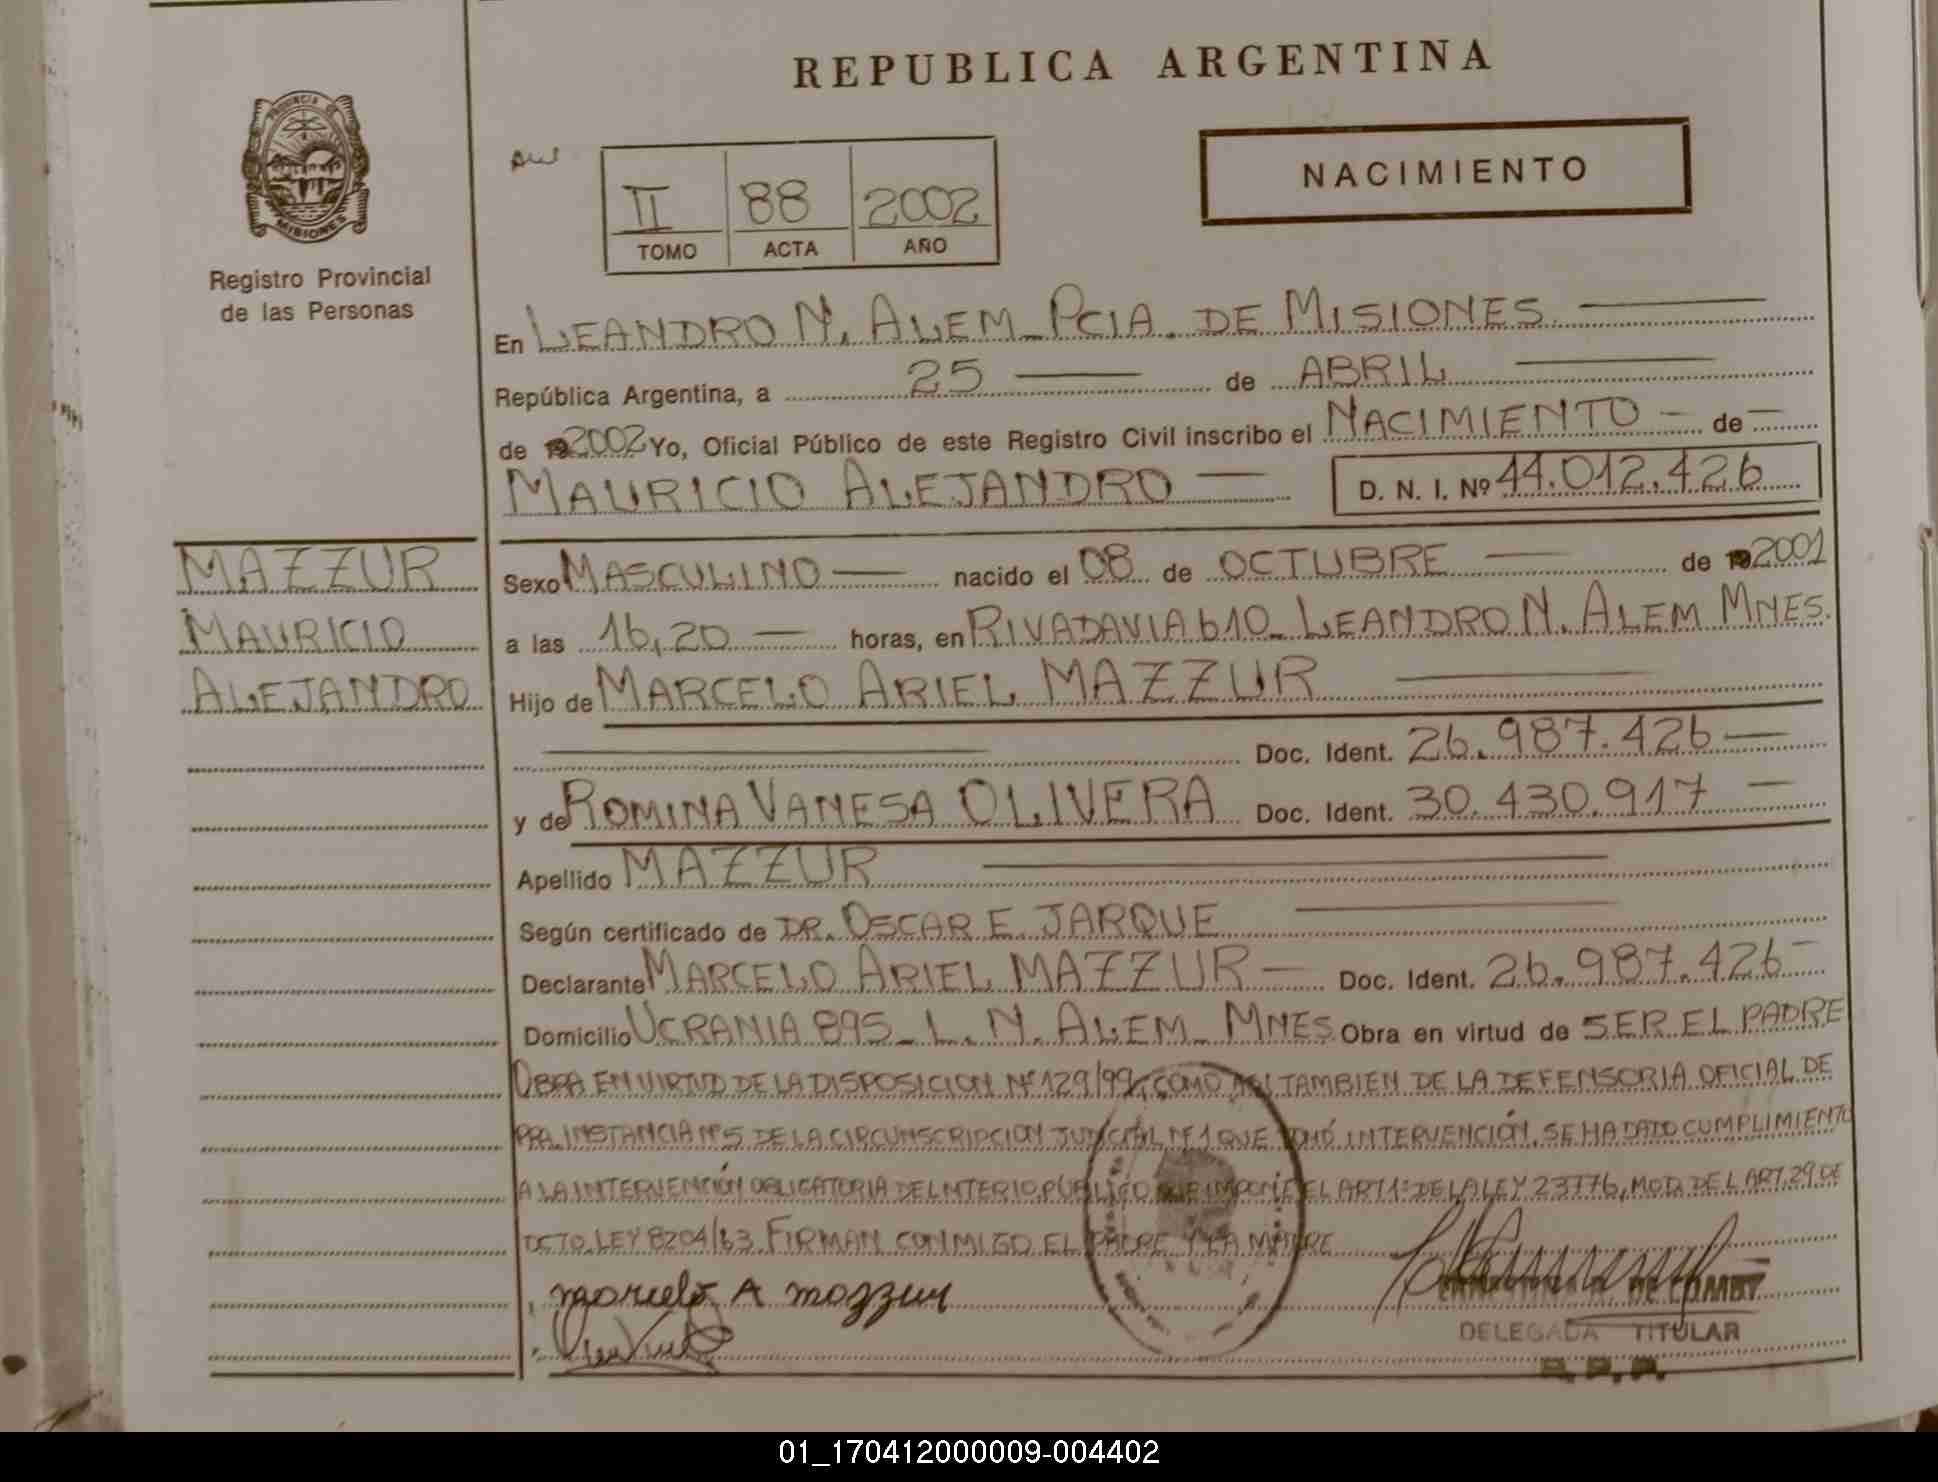 REPUBLICA ARGENTINA
PROVINCIA DE
MISIONES
Registro Provincial
de las Personas
II 88 2002
TOMO ACTA AÑO
NACIMIENTO
En LEANDRO N. ALEM_PCIA. DE MISIONES
República Argentina, a 25 de ABRIL
de 2002 Yo, Oficial Público de este Registro Civil inscribo el NACIMIENTO de
MAURICIO ALEJANDRO D. N. I. Nº 44.012.426
MAZZUR
MAURICIO
ALEJANDRO
Sexo MASCULINO nacido el 08 de OCTUBRE de 2001
a las 16,20 horas, en RIVADAVIA 610_LEANDRO N. ALEM MNES.
Hijo de MARCELO ARIEL MAZZUR
Doc. Ident. 26.987.426
y de ROMINA VANESA OLIVERA Doc. Ident. 30.430.917
Apellido MAZZUR
Según certificado de DR. OSCAR E. JARQUE
Declarante MARCELO ARIEL MAZZUR Doc. Ident. 26.987.426
Domicilio UCRANIA 895_L. N. ALEM_MNES Obra en virtud de SER EL PADRE
OBRA EN VIRTUD DE LA DISPOSICION Nº 129/99, COMO ASI TAMBIEN DE LA DEFENSORIA OFICIAL DE
PRA. INSTANCIA Nº 5 DE LA CIRCUNSCRIPCION JUDICIAL Nº 1 QUE TOMÓ INTERVENCIÓN, SE HA DADO CUMPLIMIENTO
A LA INTERVENCIÓN OBLIGATORIA DEL MTERIO PÚBLICO QUE IMPONE EL ART 1º DE LA LEY 23776, MOD. DEL ART. 29 DE
DCTO. LEY 8204/63. FIRMAN CONMIGO EL PADRE Y LA MADRE
Marcelo A Mazzur
DE COMBY
DELEGADA TITULAR
R. P. P.
01_170412000009-004402